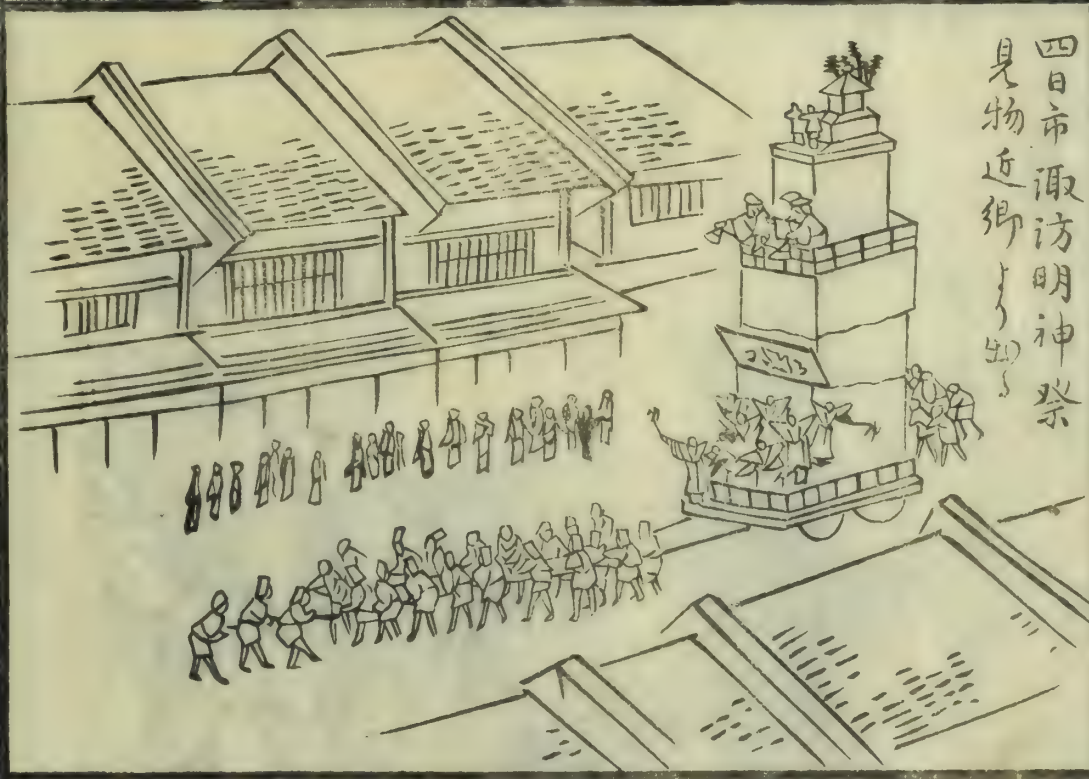 四日市諏访明神祭
見物近郷より出る